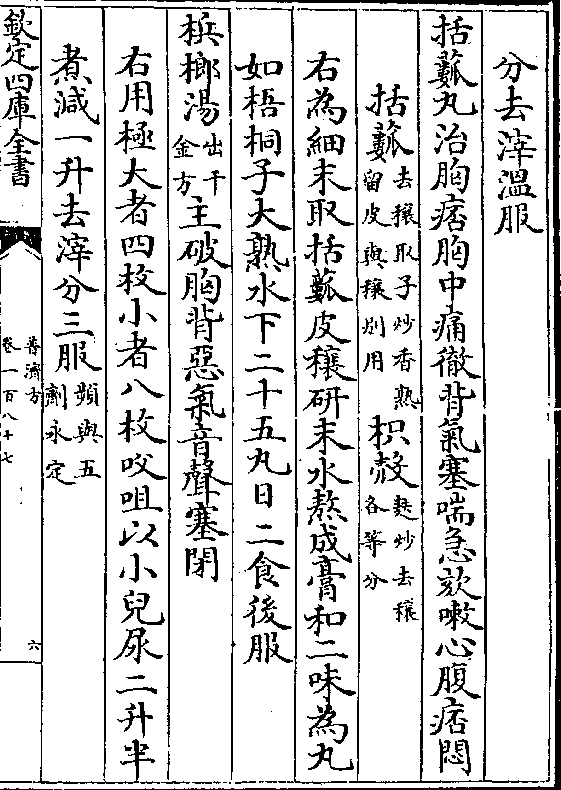 分去滓溫服
括蔞丸治胸痞胸中痛徹背氣塞喘急欬嗽心腹痞悶
括蔞去穰取子炒香熟留皮與穰别用枳殻麩炒去穰各等分
右為細末取括蔞皮穰研末水熬成膏和二味為丸
如梧桐子大熟水下二十五丸日二食後服
梹榔湯出千金方主破胸背惡氣音聲塞閉
右用極大者四枚小者八枚㕮咀以小兒尿二升半
煮減一升去滓分三服頻與五劑永定
欽定四庫全書
普濟方
卷一百八十七
六